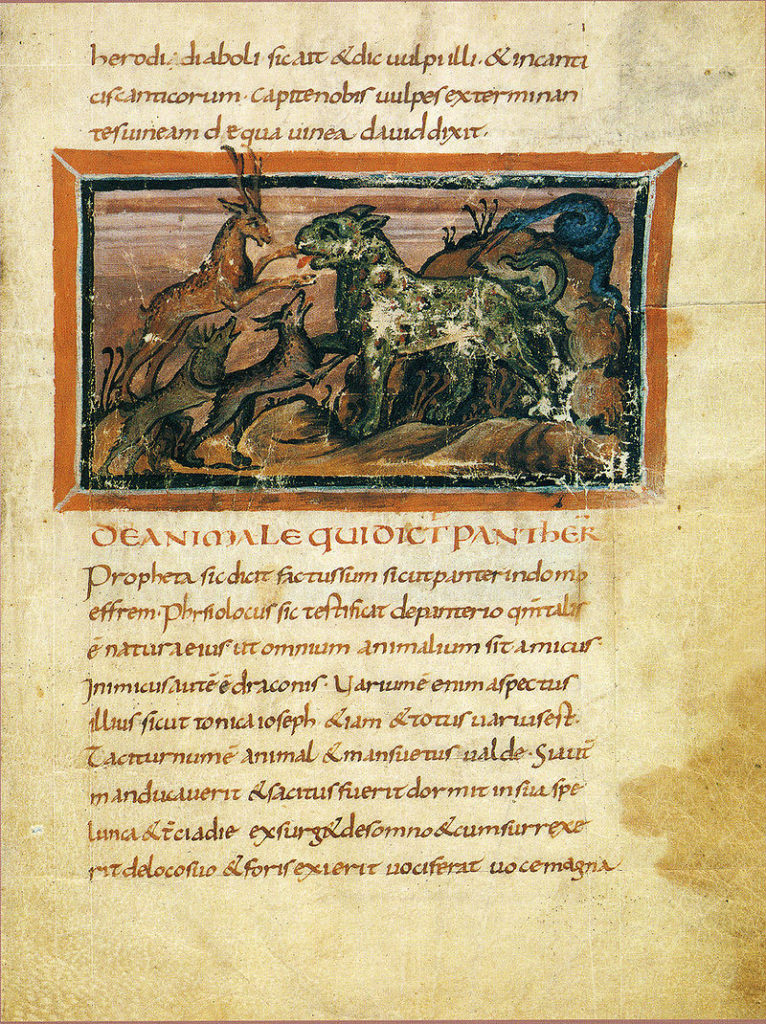 herodi diaboli sic ait & dic vulpi illi · & incanti
ciscanticorum · capitenobis vulpes exterminan
tesvineam deqva vinea daviddixit ·
DEANIMALEQUIDICT PANTHER̄
Propheta sicdicit factussum sicutpanterindomo
effrem · Phisiolocus sic testificat depanterio qm̄talis
ē naturaeius · ut omnium animalium sit amicus ·
Inimicusautē ē draconis · Variumē enim aspectus
illius sicut tonica ioseph · & iam & totus variusest ·
Taciturnumē animal & mansuetus valde · Siaut̄
manducaverit & sacitusfuerit dormit insua spe
lunca & t̄ciadie exsurg& desomno & cumsurrexe
rit delocosuo & foris exierit vociferat voce magna